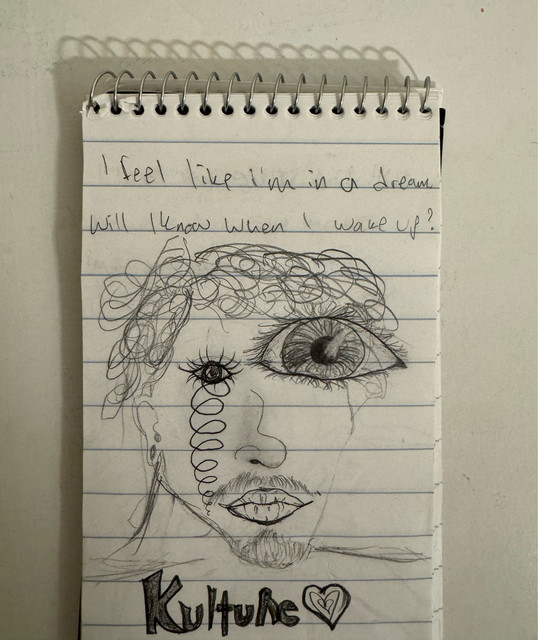 I feel like i'm in a dream
Will I know when I wake up?
Kulture